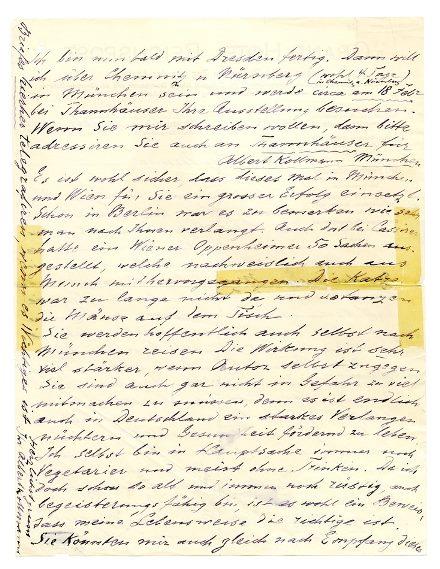 Ich bin nun bald mit Dresden fertig. Dann will
ich über Chemnitz u Nürnberg (wohl 4 Tage
in Chemnitz u. Nürnberg)
in München sein und werde circa am 18 Febr
bei Thannhäuser Ihre Ausstellung besuchen.
Wenn Sie mir schreiben wollen, dann bitte
adressiren Sie auch an Thannhäuser für
Albert Kollmann München
Es ist wohl sicher, dass dieses Mal in München
und Wien für Sie ein grosser Erfolg einsetzt.
Schon in Berlin war es zu bemerken wie sehr
man nach Ihnen verlangt. Auch dort bei Cassirer
hatte ein Wiener Oppenheimer so Sachen aus-
gestellt, welche nachweislich auch aus
Munch mit hervorgegangen. Die Katze
war zu lange nicht da und so tanzen
die Mäuse auf dem Tisch.
Sie werden hoffentlich auch selbst nach
München reisen Die Wirkung ist sehr
viel stärker, wenn Autor selbst zugegen
Sie sind auch gar nicht in Gefahr zu viel
mitmachen zu müssen, denn es ist endlich
auch in Deutschland ein starkes Verlangen
nüchtern und Gesundheit fördernd zu leben.
Ich selbst bin in Hauptsache immer noch
Vegetarier und meist ohne Trinken. Da ich
doch schon so alt und immer noch rüstig und
begeisterungsfähig bin, ist es wohl ein Beweis,
dass meine Lebensweise die richtige ist.
Sie könnten mir auch gleich nach Empfang dieses
Briefes hierher telegrafiren, wenn es
Herzlichst
Ihr Albert Kollmann